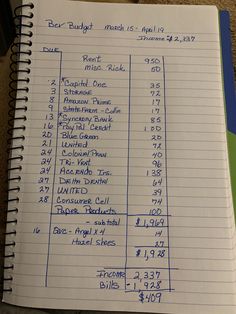 Bev Budget March 15 - April 19
Income $2,337
DUE
Rent 950
misc. Rick 50
2 *Capital One 35
3 Storage 72
8 Amazon Prime 17
9 State Farm - Colin 17
13 *Synchrony Bank 85
16 *PayPal Credit 100
20 Blue Green 20
21 United 72
24 Colonial Penn 40
24 Tri-Vent 96
24 Accendo Ins. 138
27 Delta Dental 64
27 UNITED 39
28 Consumer Cell 74
Paper Products 100
- subtotal $1,964
16 QVC - Angel x 4 14
Hazel shoes 37
$1,928
Income 2,337
Bills - 1,928
$409